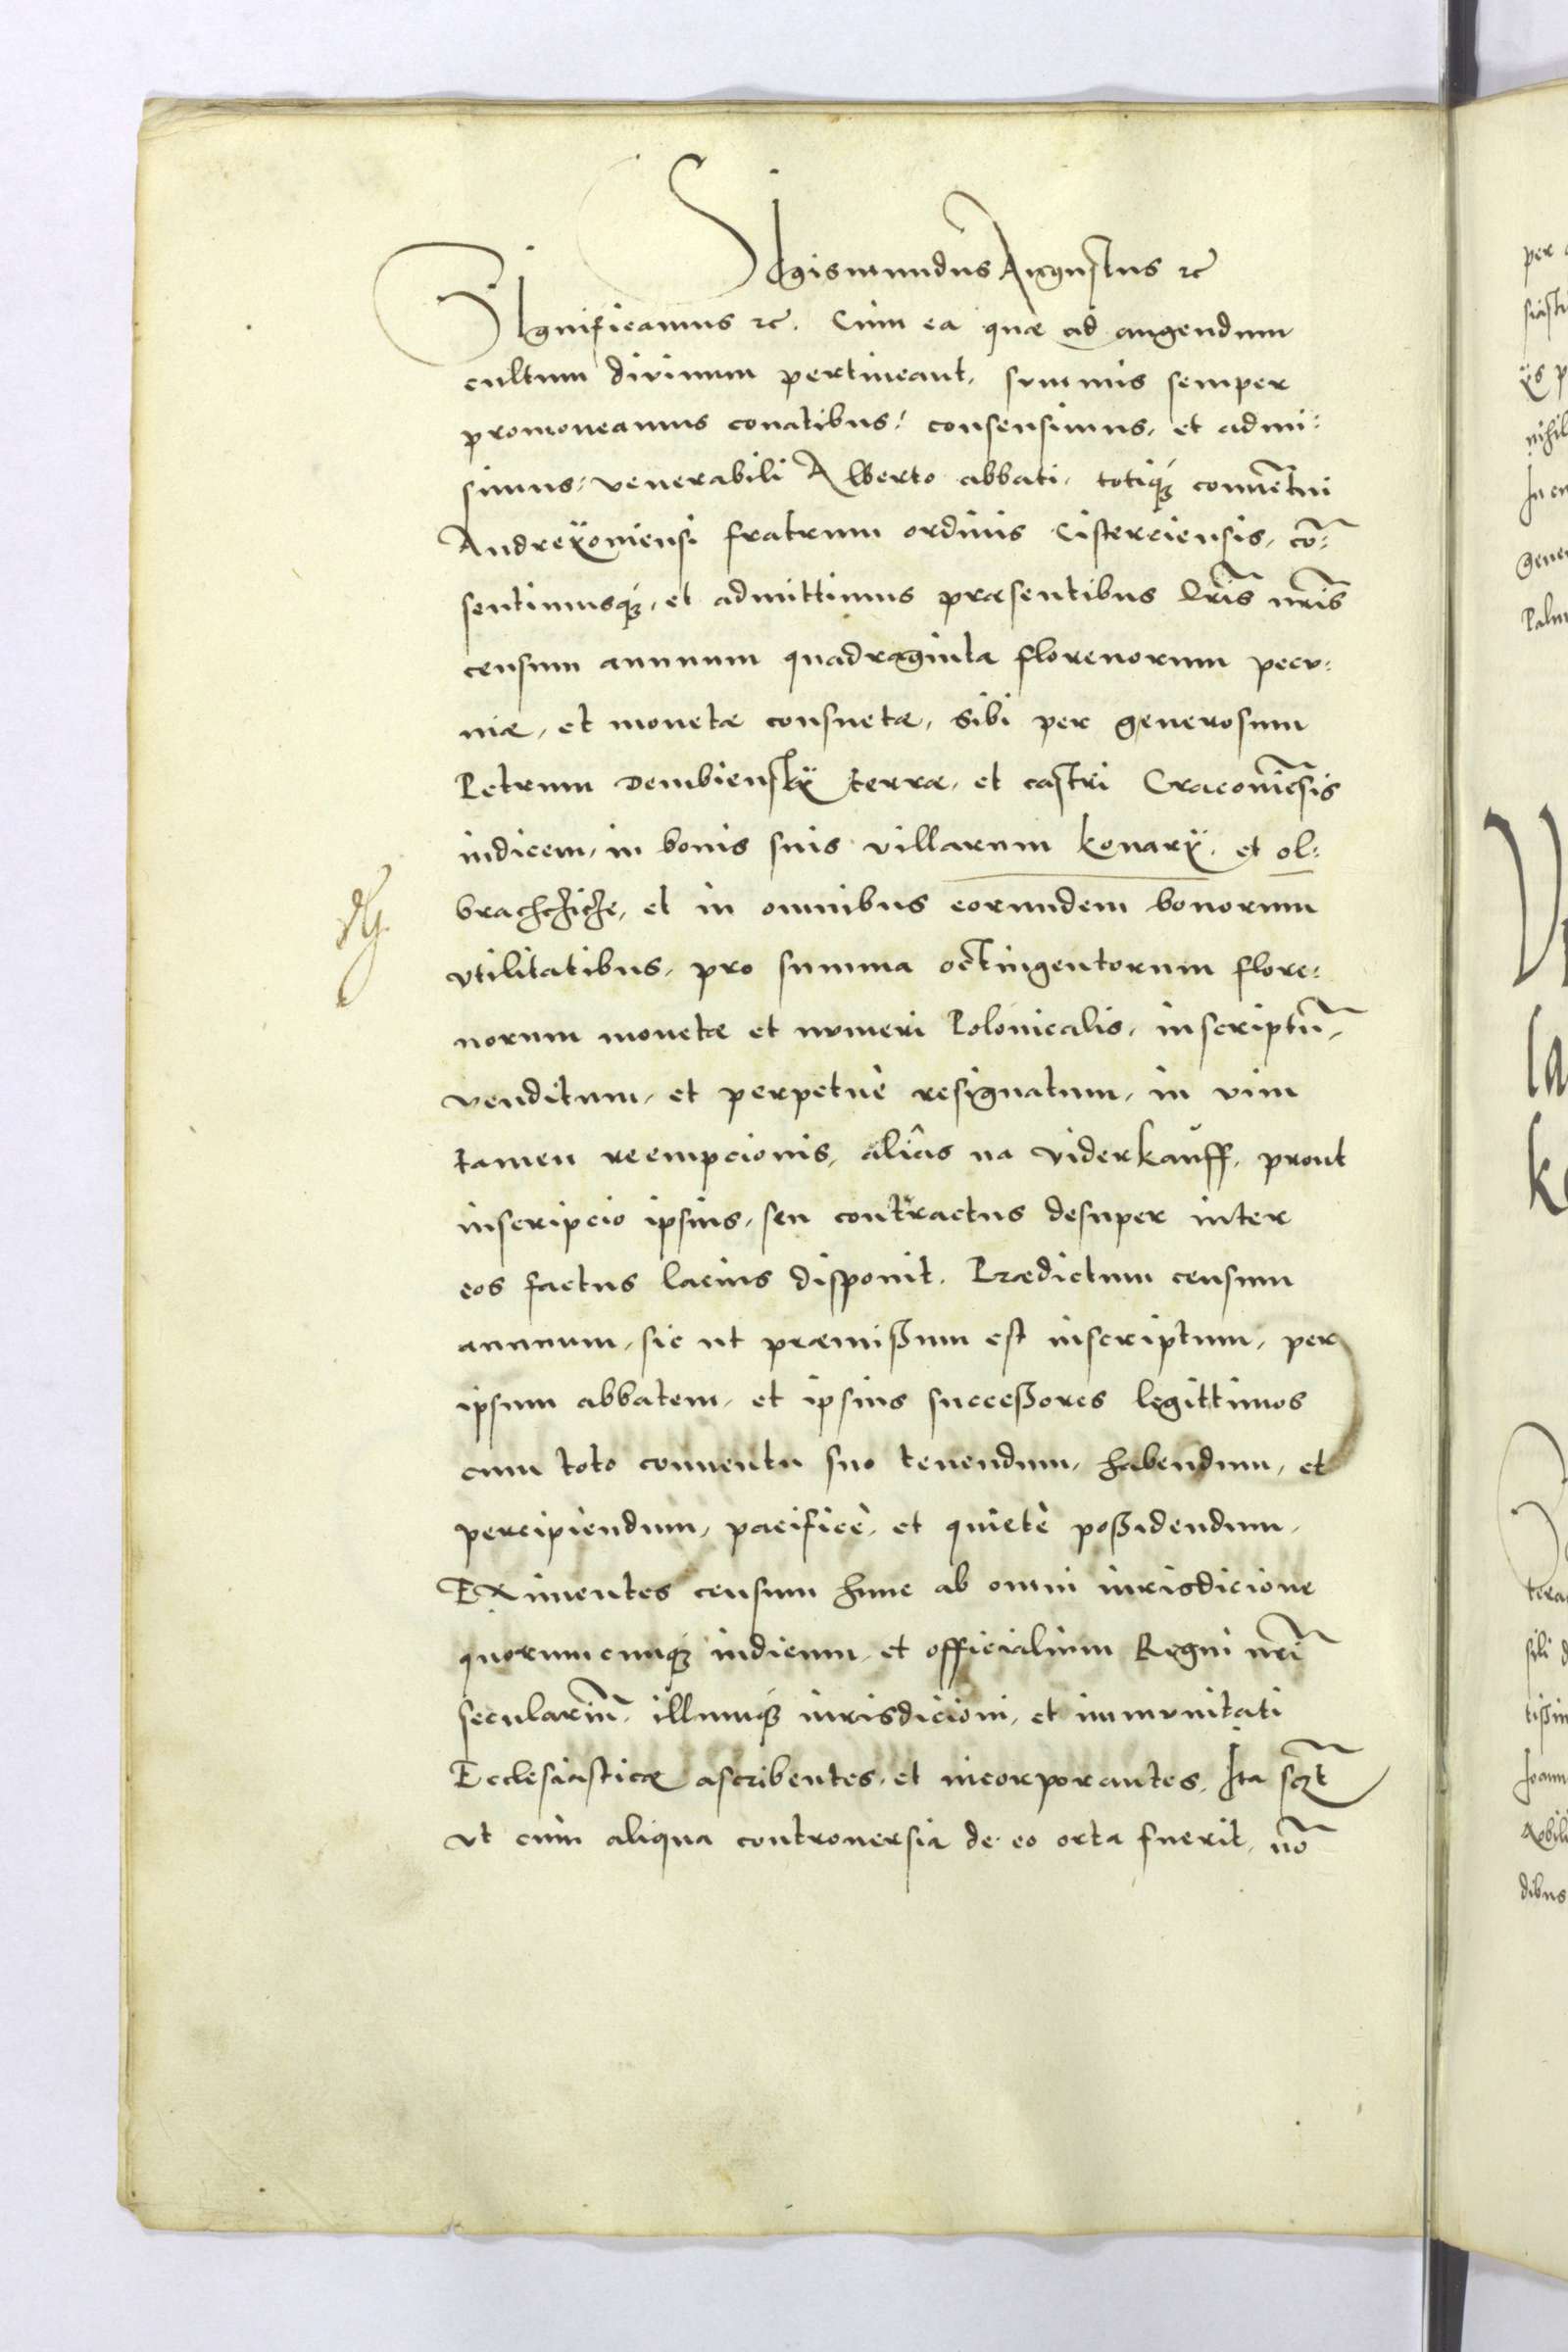 Sigismundus Augustus ꝛc
Significamus ꝛc. Cùm ea quæ ad augendum
cultum divinum pertineant, summis semper
promoveamus conatibus: consensimus, et admi:
simus: venerabili Alberto abbati, totiqꝫ convẽtui
Andrexoviensi fratrum ordinis Cisterciensis, cõ:
sentimusqꝫ, et admittimus præsentibus lr̃is nr̃is
censum annuum quadraginta florenorum pecu:
niæ, et monetæ consuetæ, sibi per generosum
Petrum Dembiensky terræ, et castri Cracoviẽsis
iudicem, in bonis suis villarum Konarÿ, et ol:
brachcziche, et in omnibus eorundem bonorum
utilitatibus, pro summa octingentorum flore:
norum monetæ et numeri Polonicalis, inscriptũ,
venditum, et perpetuè resignatum, in vim
tamen reempcionis, aliâs na viderkauff, prout
inscripcio ipsius, seu contractus desuper inter
eos factus lacius disponit. Prædictum censum
annuum, sic ut præmißum est inscriptum, per
ipsum abbatem, et ipsius succeßores legittimos
cum toto conventu suo tenendum, habendum, et
percipiendum, pacificè, et quietè poßidendum,
Eximentes censum hunc ab omni iurisdicione
quorumcunqꝫ iudicum, et officialium Regni nr̃i
seculariũ, illumqꝫ iurisdicioni, et immunitati
Ecclesiasticæ ascribentes, et incorporantes, Ita
ut cùm aliqua controversia de eo orta fuerit, nõ